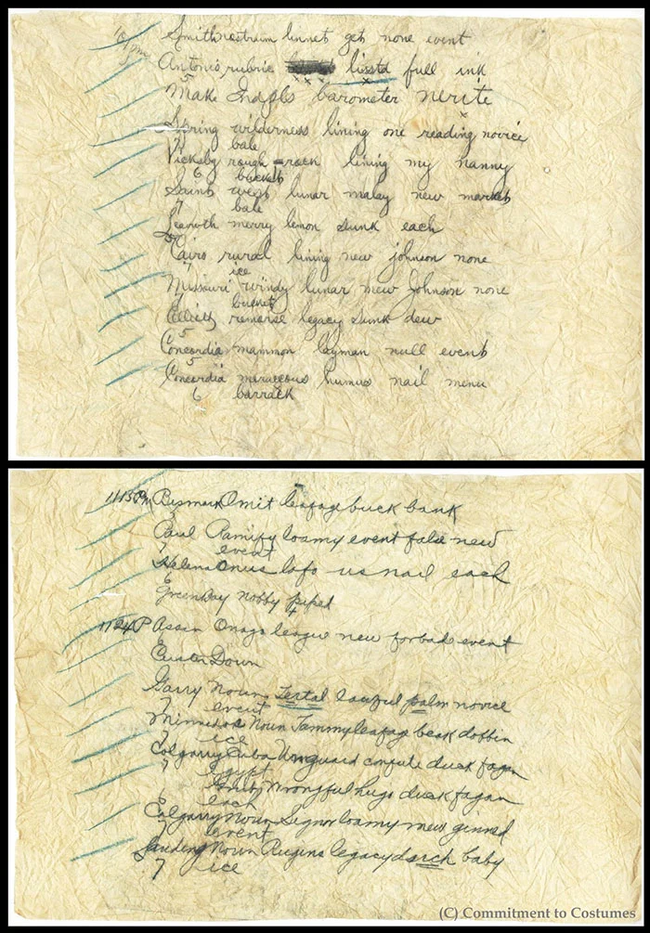 Smith nostrum linnet get none event
Antonio rubric lissta full ink
5
Make Indpls barometer nerite
Spring wilderness lining one reading novice
7 bale
Vicksbg rough rack lining my nanny
6 bucket
Saint west lunar malay new market
7 bale
merry lemon sunk each
Cairo rural lining new johnson none
7 ice
Missouri windy lunar new Johnson none
7 bucket
Elliott removse legacy sunk dew
5
Concordia mammon layman null event
5
Concordia meraccous humus nail menu
6 barrack
1113PM Bismark Omit leafage buck bank
Paul Ramify loamy event false new
7 event
Helena Onus lofo us nail each
6
Green Bay nobby piped
1124P Assin Onago league new forbade event
6
Custer Down
Garry Noun Tertal lawful palm novice
7 event
Minnedos Noun Jammy leafage beak dobbin
7 ice
Calgarry Cuba Unguard confute duck fagan
7 Egypt
Wrongful hugo duck fagan
6 each
Calgarry Noun Signor loamy mew ginned
7 event
Landing Noun Rugins legacy duck baby
7 ice
(C) Commitment to Costumes